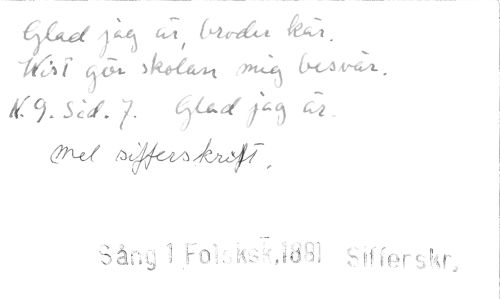 Glad jag är, broder kär.
Wist gör skolan mig besvär.
N. 9. Sid. 7. Glad jag är.
Mel sifferskrift.
Sång 1 Folksk.,1881 Sifferskr,